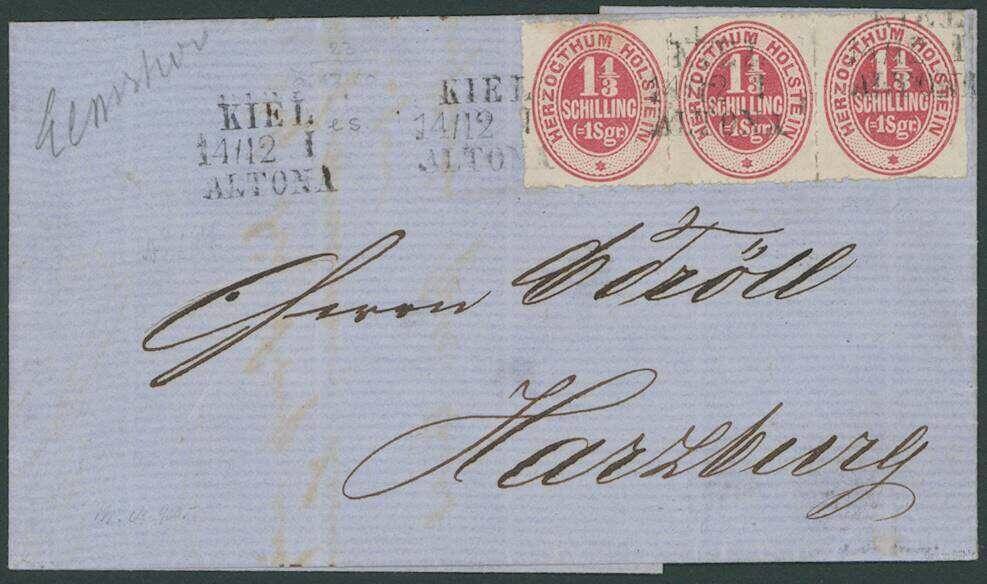 Elmshor
KIEL
14/12 I
ALTONA
KIEL
14/12 I
ALTONA
HERZOGTHUM HOLSTEIN
1 1/3
SCHILLING
(=1Sgr.)
HERZOGTHUM HOLSTEIN
1 1/3
SCHILLING
(=1Sgr.)
HERZOGTHUM HOLSTEIN
1 1/3
SCHILLING
(=1Sgr.)
KIEL
14/12 I
ALTONA
KIEL
14/12 I
ALTONA
Herrn
Harzburg